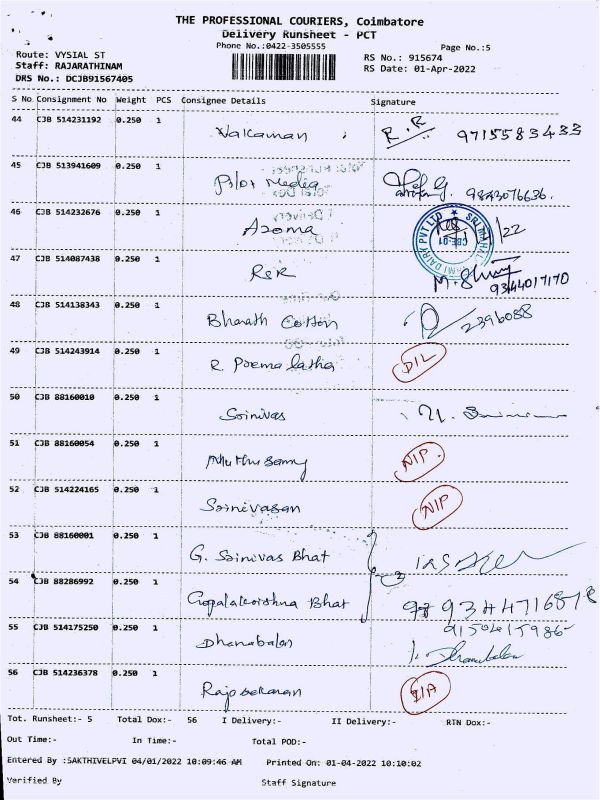 THE PROFESSIONAL COURIERS, Coimbatore
Delivery Runsheet - PCT
Phone No.:0422-3505555
Page No.:5
Route: VYSIAL ST
RS No.: 915674
Staff: RAJARATHINAM
RS Date: 01-Apr-2022
DRS No.: DCJB91567405
S No Consignment No Weight PCS Consignee Details Signature
44 CJB 514231192 0.250 1 R.R 9715583433
45 CJB 513941609 0.250 1 Pilot Media 9843076636.
46 CJB 514232676 0.250 1 Aroma /22
47 CJB 514087438 0.250 1 R&R 9344017170
48 CJB 514138343 0.250 1 Bharath Cotton 2396088
49 CJB 514243914 0.250 1 R. Prema latha D/L
50 CJB 88160010 0.250 1 Srinivas
51 CJB 88160054 0.250 1 Muthusamy NIP.
52 CJB 514224165 0.250 1 Srinivasan NIP
53 CJB 88160001 0.250 1 G. Srinivas Bhat
54 CJB 88286992 0.250 1 Gopalakrishna Bhat
55 CJB 514175250 0.250 1 Dhanabalan
56 CJB 514236378 0.250 1 Rajasekaran I/A
Tot. Runsheet:- 5 Total Dox:- 56 I Delivery:- II Delivery:- RTN Dox:-
Out Time:- In Time:- Total POD:-
Entered By :SAKTHIVELPVI 04/01/2022 10:09:46 AM Printed On: 01-04-2022 10:10:02
Verified By Staff Signature